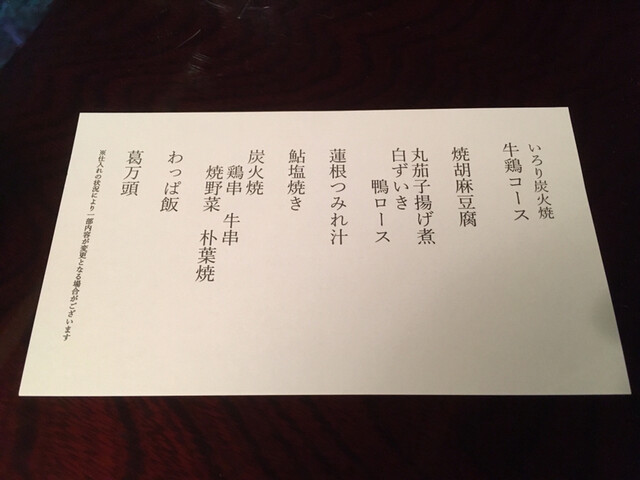 いろり炭火焼
牛鶏コース
焼胡麻豆腐
丸茄子揚げ煮
白ずいき 鴨ロース
蓮根つみれ汁
鮎塩焼き
炭火焼
鶏串 牛串
焼野菜 朴葉焼
わっぱ飯
葛万頭
※仕入れの状況により一部内容が変更となる場合がございます